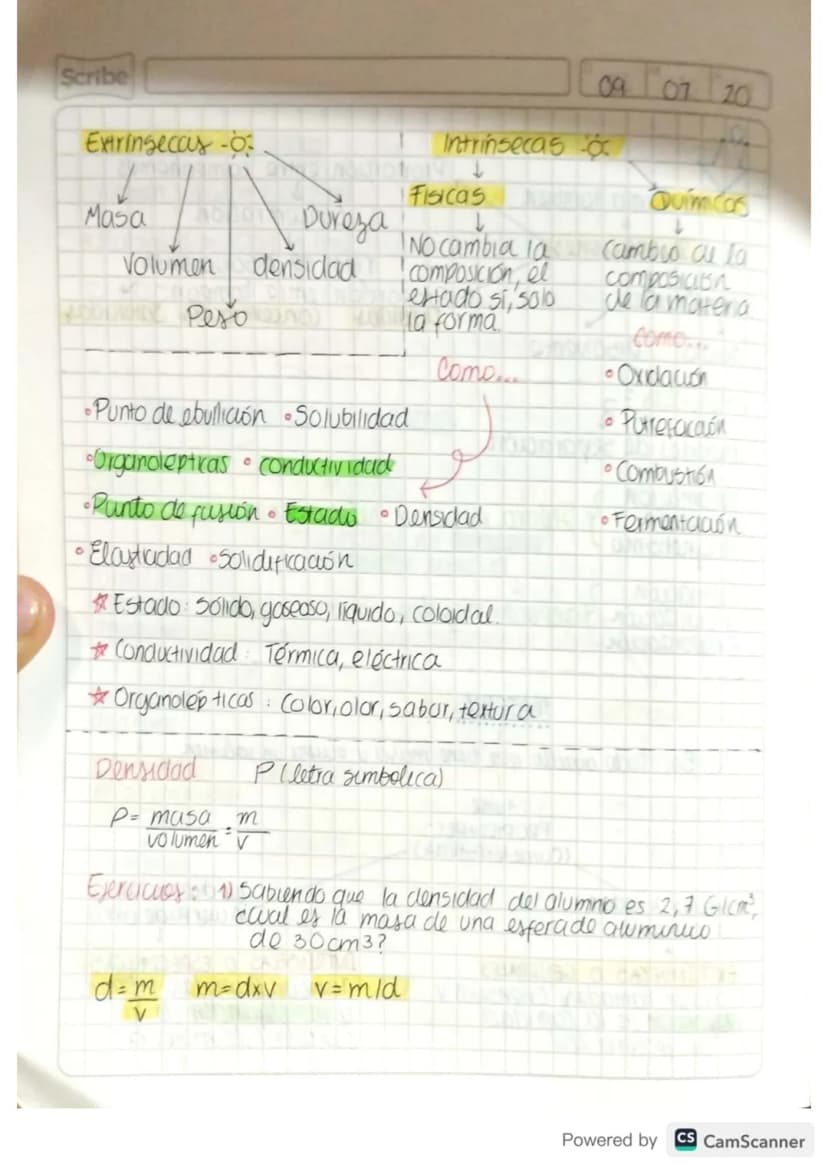 Scribe
09 07 20
Extrínsecas
Masa
Volumen
Peso
densidad
Dureza
Intrínsecas
Físicas
No cambia la
composición, el
estado sí, solo
la forma.
Como...
Químicas
Cambio de la
composición
de la materia
como...
• Oxidación
• Putrefacción
• Combustión
• Fermentación
• Punto de ebullición • Solubilidad
• Organolépticas • conductividad
• Punto de fusión • Estado • Densidad
• Elasticidad • Solidificación
☆ Estado: sólido, gaseoso, líquido, coloidal.
☆ Conductividad: Térmica, eléctrica
☆ Organolépticas: Color, olor, sabor, textura
Densidad P (letra simbolica)
P= masa/volumen = m/v
Ejercicios: 1) Sabiendo que la densidad del alumno es 2,7 G/cm³,
cual es la masa de una esfera de aluminico
de 30cm3?
d=m/v m=dxv v=m/d
Powered by CS CamScanner